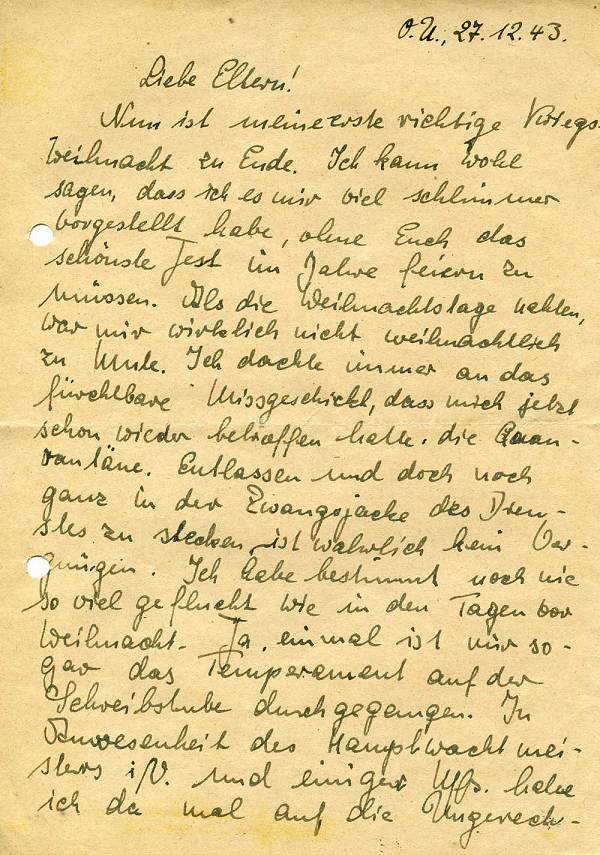 O.U., 27.12.43.
Liebe Eltern!
Nun ist meine erste richtige Kriegs-
weihnacht zu Ende. Ich kann wohl
sagen, dass ich es mir viel schlimmer
vorgestellt habe, ohne Euch das
schönste Fest im Jahre feiern zu
müssen. Als die Weihnachtstage nahten,
war mir wirklich nicht weihnachtlich
zu Mute. Ich dachte immer an das
furchtbare Missgeschick, dass mich jetzt
schon wieder betroffen hatte. die Quan-
rantäne. Entlassen und doch noch
ganz in der Zwangsjacke des Dien-
stes zu stecken, ist wahrlich kein Ver-
gnügen. Ich habe bestimmt noch nie
so viel geflucht wie in den Tagen vor
Weihnacht. Ja, einmal ist mir so-
gar das Temperament auf der
Schreibstube durchgegangen. In
Anwesenheit des Hauptwachtmei-
sters i/V. und einiger Uffz. habe
ich da mal auf die Ungerech-